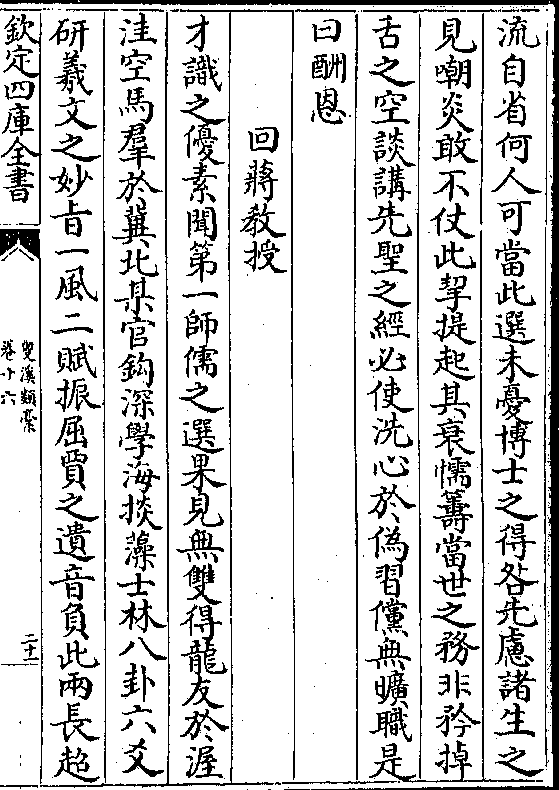 流自省何人可當此選未憂博士之得咎先慮諸生之
見嘲炎敢不仗此挈提起其衰懦籌當世之務非矜掉
舌之空談講先聖之經必使洗心於偽習儻無曠職是
曰酬恩
回蔣教授
才識之優素聞第一師儒之選果見無雙得龍友於渥
洼空馬羣於冀北某官鈎深學海掞藻士林八卦六爻
研羲文之妙㫖一風二賦振屈賈之遺音負此兩長超
欽定四庫全書
雙溪類槀
卷十六
二十一